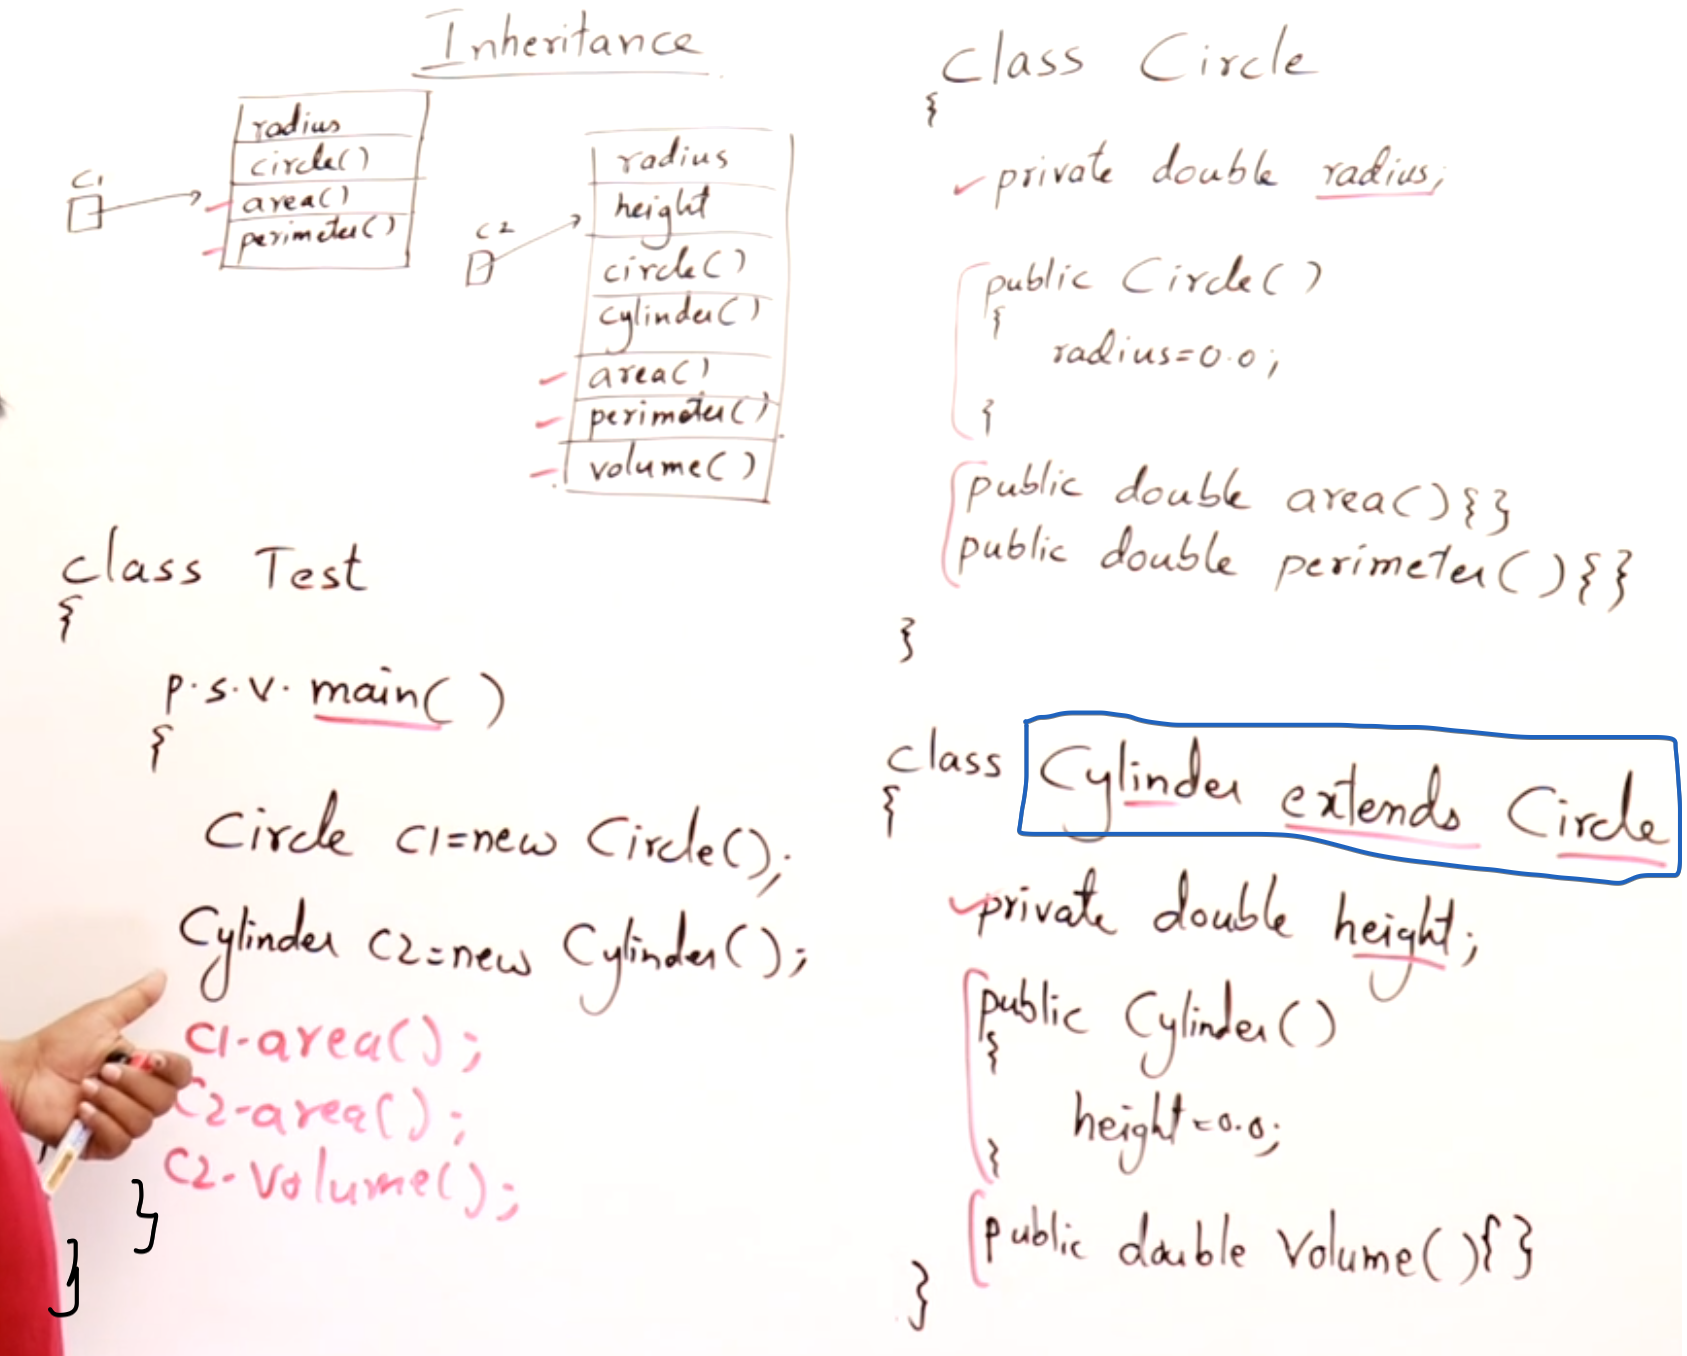 Inheritance
radius
circle()
area()
perimeter()
C1
radius
height
circle()
cylinder()
area()
perimeter()
volume()
C2
class Test
{
p.s.v. main( )
{
Circle C1=new Circle();
Cylinder C2=new Cylinder();
C1.area();
C2.area();
C2.volume();
}
}
class Circle
{
private double radius;
public Circle()
{
radius=0.0;
}
public double area(){}
public double perimeter(){}
}
class Cylinder extends Circle
{
private double height;
public Cylinder()
{
height=0.0;
}
public double Volume(){}
}